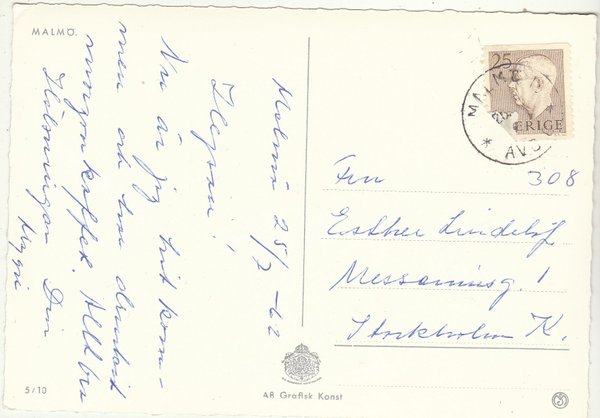 MALMÖ.
Malmö 25/7 -62
Hejsan!
Nu är jag hit kom-
men och har druckit
morgonkaffe. Allt bra
Hälsningar Din
25
SVERIGE
MALMÖ
AVG
Fru 308
Esther Lindelöf
Messaniusg. 1
Stockholm K.
5/10
AB Grafisk Konst